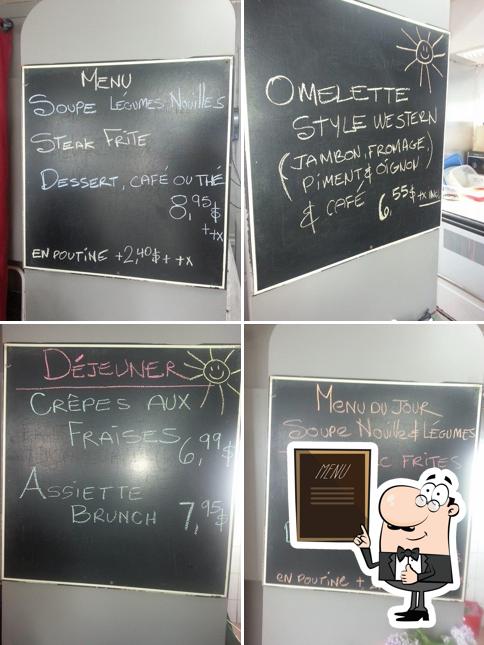 MENU
SOUPE LÉGUMES, NOUILLES
STEAK FRITE
DESSERT, CAFÉ OU THÉ
8,95$
+tx
EN POUTINE +2,40$ + tx
OMELETTE
STYLE WESTERN
(JAMBON, FROMAGE,
PIMENT & OIGNON)
& CAFÉ 6,55$ +tx INC
DÉJEUNER
CRÊPES AUX
FRAISES 6,99$
ASSIETTE
BRUNCH 7,95$
MENU DU JOUR
SOUPE NOUILLE & LÉGUMES
FRITES
MENU
EN POUTINE +